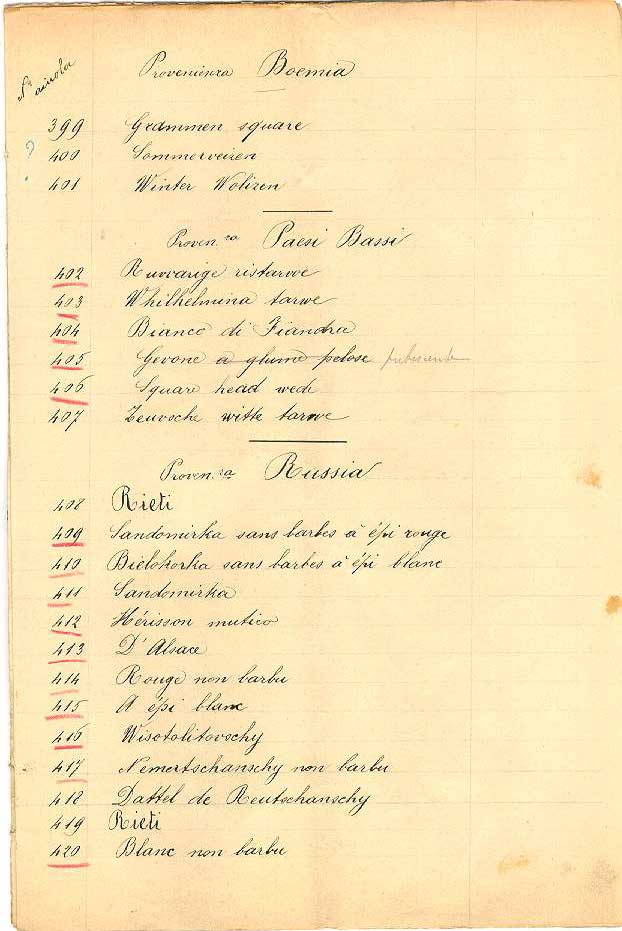 N° aiuola
Provenienza Boemia
399 Grammen square
? 400 Sommerveiren
401 Winter Wolizen
Proven.za Paesi Bassi
402 Ruwarige ristarwe
403 Whilhelmina tarwe
404 Bianco di Fiandra
405 Gevone a glume pelose pubescente
406 Square head wede
407 Zeuvsche witte tarwe
Proven.za Russia
408 Rieti
409 Sandomirka sans barbes à épi rouge
410 Bielokorka sans barbes à épi blanc
411 Sandomirka
412 Hérisson mutico
413 D'Alsace
414 Rouge non barbu
415 A épi blanc
416 Wisotolitovschy
417 Nemertschanschy non barbu
418 Dattel de Reutschanschy
419 Rieti
420 Blanc non barbu